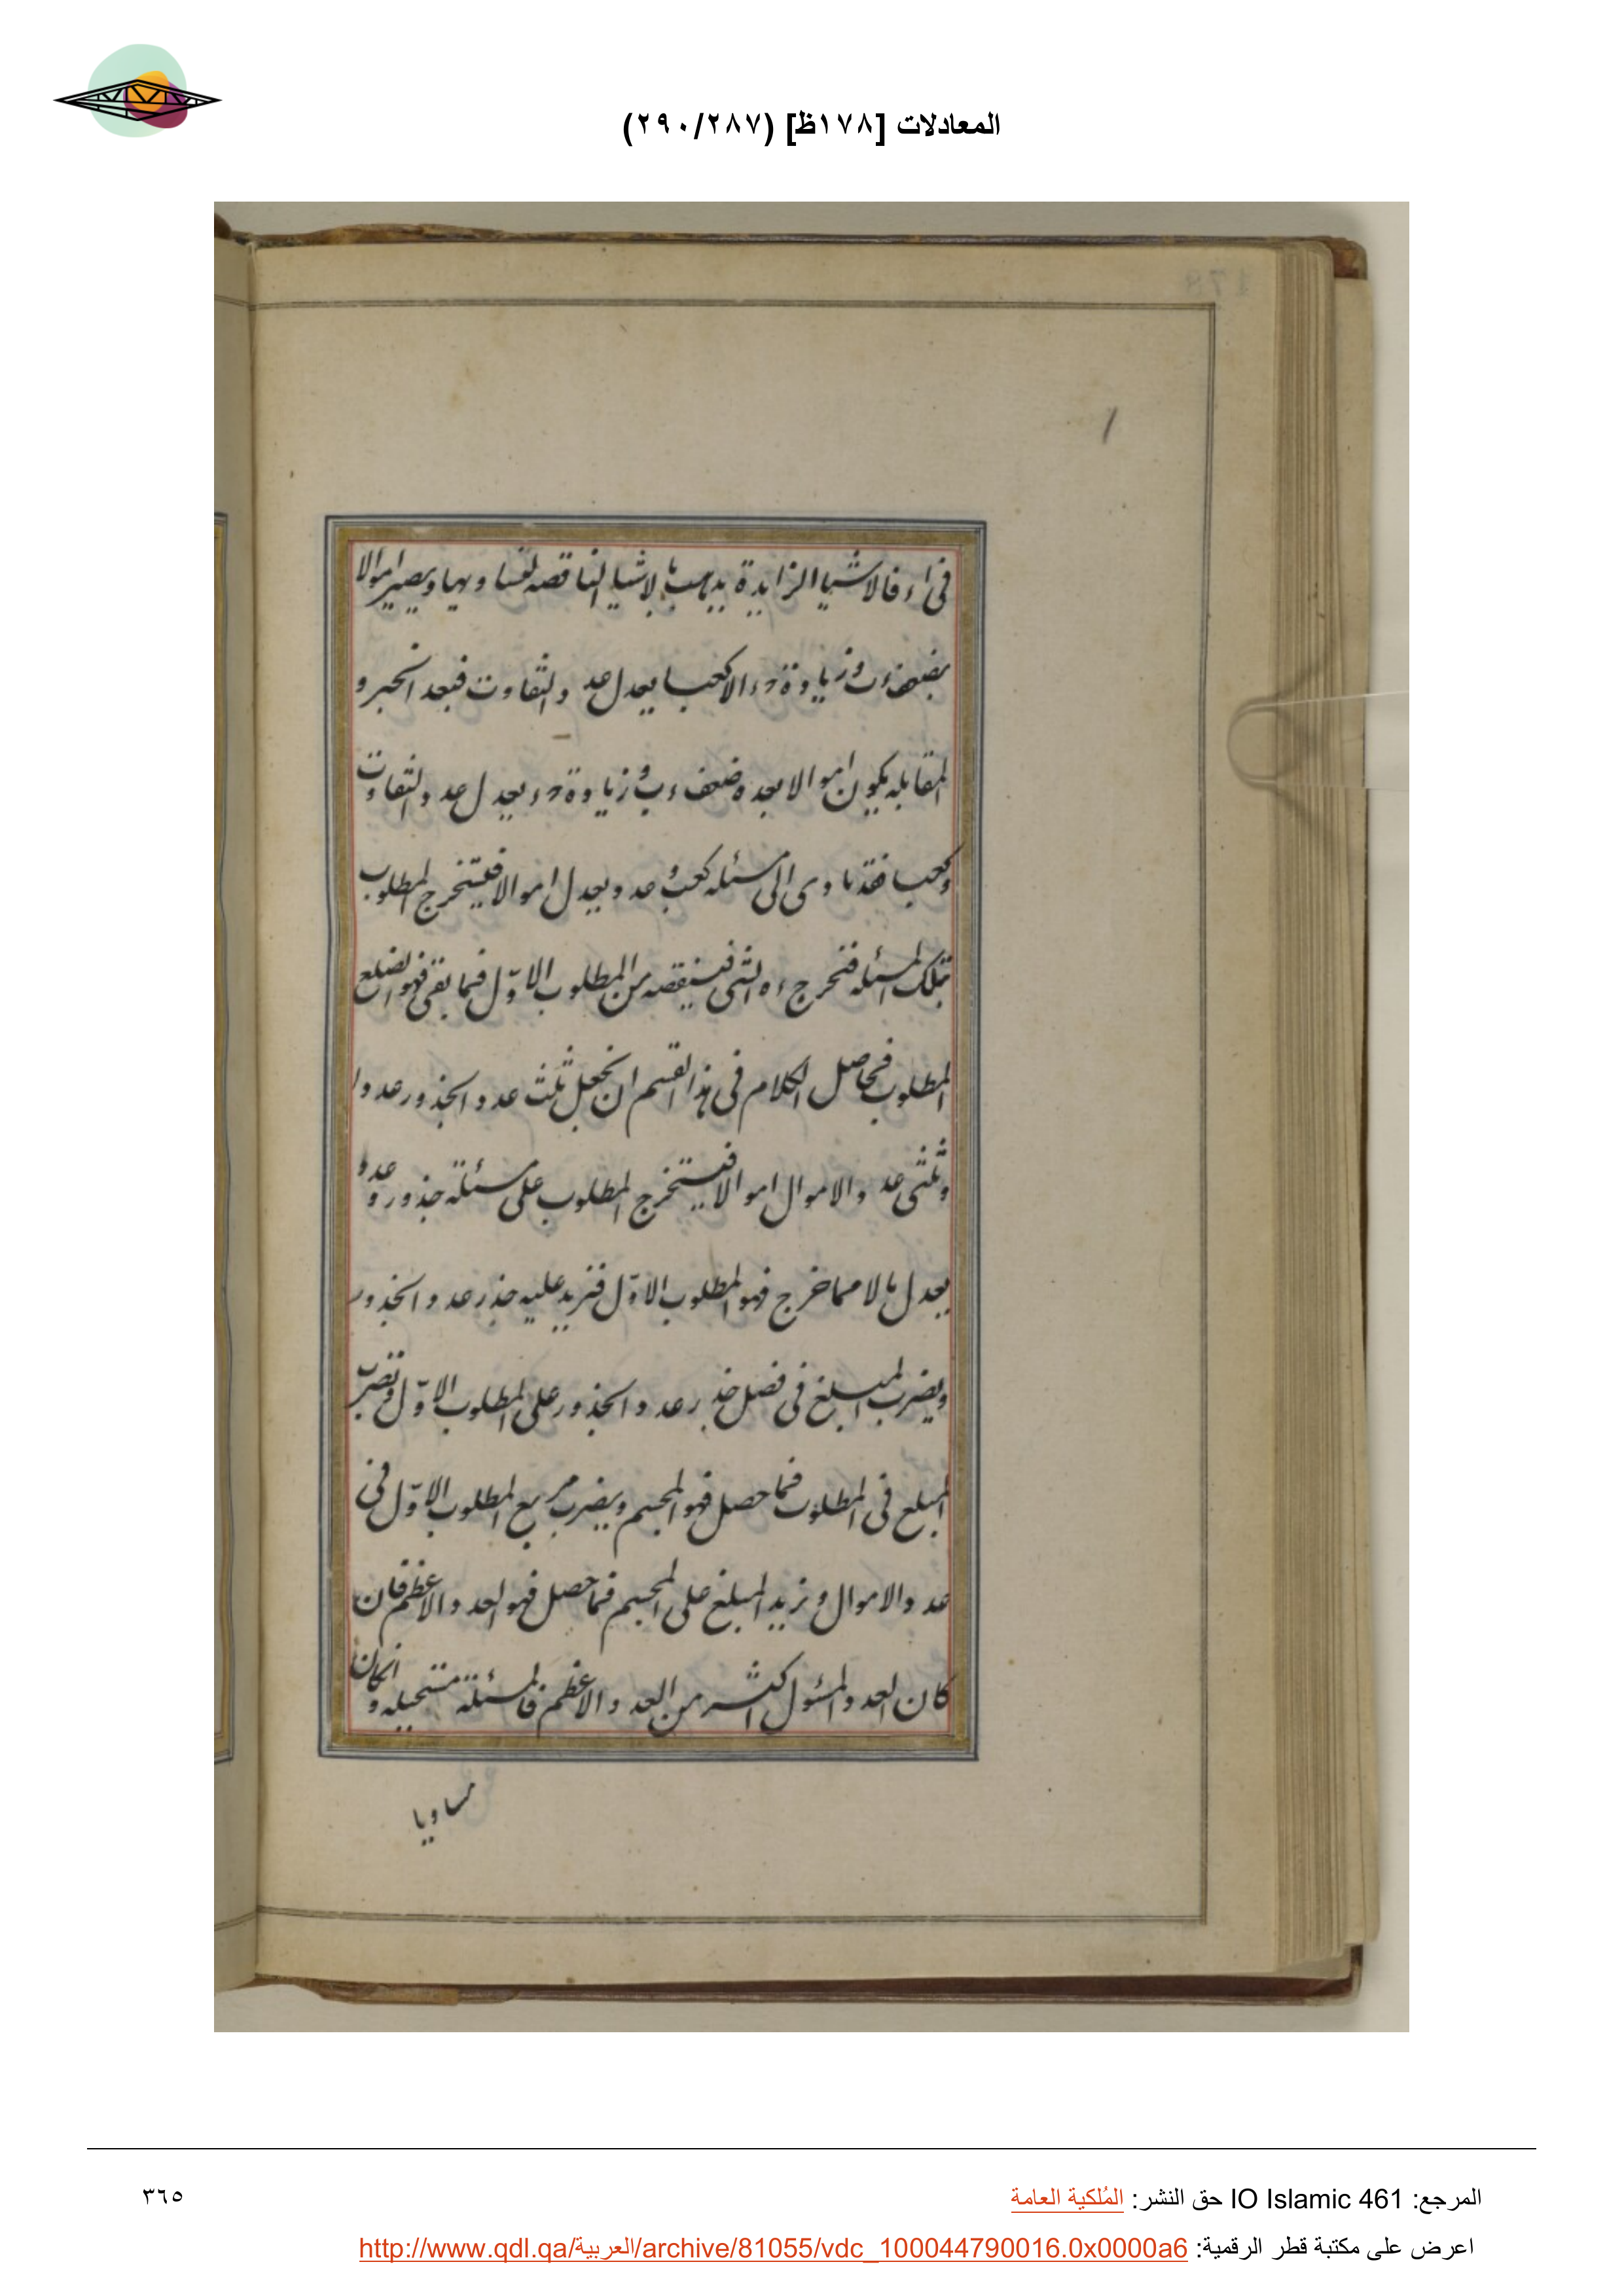 المعادلات [١٧٨ظ] (٢٩٠/٢٨٧)
178
فى ا ء فالاشيا الزايدة يذهب بالاشيا الناقصه لتساويهما ويصير اموالا
بضعف ء ب و زيادة د ء الا كعبا يعدل عدد التفاوت فبعد الجبر و
المقابله يكون اموالا بعدة ضعف ء ب و زيادة د ء يعدل عدد التفاوت
وكعبا فقد تادى الى مسئله كعب و عدد يعدل اموالا فيستخرج المطلوب
بتلك المسئله فتخرج ء ه الشى فسينقصه من المطلوب الاوّل فما بقى فهو الضلع
المطلوب فحاصل الكلام فى هذا القسم ان نجعل ثلث عدد الجذور عددا
وثلثى عدد الاموال اموالا فيستخرج المطلوب على مسئلة جذور و عدد
يعدل مالا مما خرج فهو المطلوب الاوّل فنزيد عليه جذر عدد الجذور
ويضرب المبلغ فى فضل جذر عدد الجذور على المطلوب الاوّل ونضرب
المبلغ فى المطلوب فما حصل فهو المجسم ويضرب مربع المطلوب الاوّل فى
عدد الاموال و نزيد المبلغ على المجسم فما حصل فهو العدد الاعظم فان
كان العدد المسئول اكثر من العدد الاعظم فالمسئلة مستحيله و انكان
مساويا
المرجع: IO Islamic 461 حق النشر: المُلكية العامة
٣٦٥
اعرض على مكتبة قطر الرقمية: http://www.qdl.qa/العربية/archive/81055/vdc_100044790016.0x0000a6